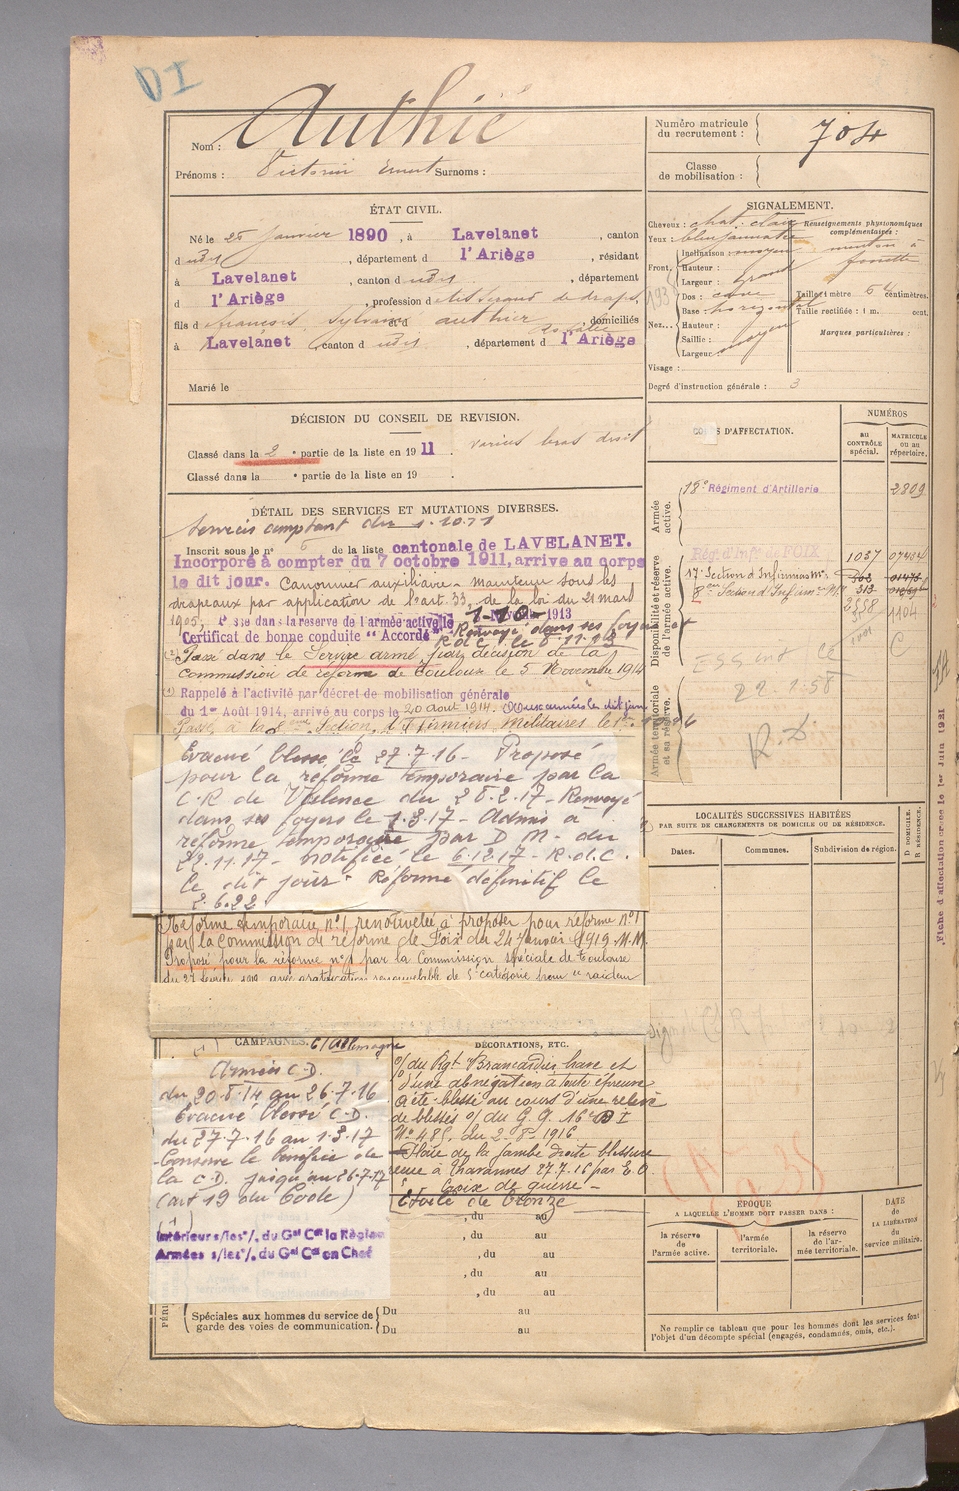 DI
Nom : Authié
Numéro matricule du recrutement : 704
Prénoms : Victorin Ernest Surnoms :
Classe de mobilisation :
ÉTAT CIVIL.
Né le 25 janvier 1890, à Lavelanet, canton
dudit, département d l'Ariège, résidant
à Lavelanet, canton dudit, département
d l'Ariège, profession de de draps
fils de François Sylvain et d authier Rosalie domiciliés
à Lavelanet, canton dudit, département d l'Ariège
Marié le
SIGNALEMENT.
Cheveux : chat. clair
Yeux : bleu jaunâtre
Front, Inclinaison : moyen
Hauteur :
Largeur : grand
Nez... Dos : cave
Base : horizontal
Hauteur :
Saillie :
Largeur : moyen
Visage :
Renseignements physionomiques complémentaires :
menton à fossette
Taille : 1 mètre 64 centimètres.
Taille rectifiée : 1 m. cent.
Marques particulières :
Degré d'instruction générale : 3
DÉCISION DU CONSEIL DE REVISION.
Classé dans la 2e partie de la liste en 1911. bras droit
Classé dans la e partie de la liste en 19 .
DÉTAIL DES SERVICES ET MUTATIONS DIVERSES.
Services comptant du 1.10.11
Inscrit sous le n° 6 de la liste cantonale de LAVELANET.
Incorporé à compter du 7 octobre 1911, arrive au corps
le dit jour. Canonnier auxiliaire - maintenu sous les
drapeaux par application de l'art. 33, de la loi du 21 mars
1905, dans la réserve de l'armée active le 1913
Certificat de bonne conduite "Accordé" Renvoyé dans ses foyers et
R.d.C. le 8.11.13
Passé dans le Service armé par décision de la
Commission de réforme de Toulouse le 5 Novembre 1914
Rappelé à l'activité par décret de mobilisation générale
du 1er Août 1914, arrivé au corps le 20 août 1914. Aux armées le dit jour
Passé à la Section d'Infirmiers Militaires le
Evacué blessé le 27.7.16 - Proposé
pour la réforme temporaire par la
C.R de Valence du 28.2.17 - Renvoyé
dans ses foyers le 1.3.17 - Admis à
réforme temporaire par D M. du
22.11.17 - notifiée le 6.12.17 - R.d.C.
le dit jour - Réformé définitif le
2.6.22
Réforme temporaire n°1, renouvelée à proposer pour réforme n°1
par la Commission de réforme de Foix du 24 janvier 1919. M.M.
Proposé pour la réforme n°1 par la Commission spéciale de Toulouse
du 27 février 1919 avec gratification renouvelable de 5e catégorie pour "raideur
CORPS D'AFFECTATION.
NUMÉROS
au CONTRÔLE spécial.
MATRICULE ou au répertoire.
Armée active.
18e Régiment d'Artillerie 2809
Disponibilité et réserve de l'armée active.
Rég. d'Inf. de FOIX 1037
17e Section d'Infirmiers Mres
8eme Section d'Infirm. M. 313
1104
Armée territoriale et sa réserve.
22.1.58
R.D
LOCALITÉS SUCCESSIVES HABITÉES
PAR SUITE DE CHANGEMENTS DE DOMICILE OU DE RÉSIDENCE.
Dates.
Communes.
Subdivision de région.
D DOMICILE. R RÉSIDENCE.
Fiche d'affectation créée le 1er Juin 1921
CAMPAGNES. C/Allemagne
Armées C.D.
du 20.8.14 au 26.7.16
Evacué blessé C.D.
du 27.7.16 au 1.3.17
Conserve le bénéfice de
la C.D. jusqu'au 26.7.17
(art 19 du Code)
Intérieur s/les °/. du Gal Ct la Région
Armées s/les °/. du Gal Ct en Chef
DÉCORATIONS, ETC.
°/. du Rgt "Brancardier brave et
d'une abnégation à toute épreuve
a été blessé au cours d'une relève
de blessés °/. du G.G. 16e D I
N° 485, du 2-8e 1916
Plaie de la jambe droite blessure
reçue à Tharannes 27.7.16 par E.O.
Croix de guerre -
Étoile de Bronze
, du au
, du au
, du au
, du au
, du au
Spéciales aux hommes du service de garde des voies de communication. Du au
Du au
ÉPOQUE
A LAQUELLE L'HOMME DOIT PASSER DANS :
la réserve de l'armée active.
l'armée territoriale.
la réserve de l'armée territoriale.
DATE de LA LIBÉRATION du service militaire.
Ne remplir ce tableau que pour les hommes dont les services font
l'objet d'un décompte spécial (engagés, condamnés, omis, etc.).